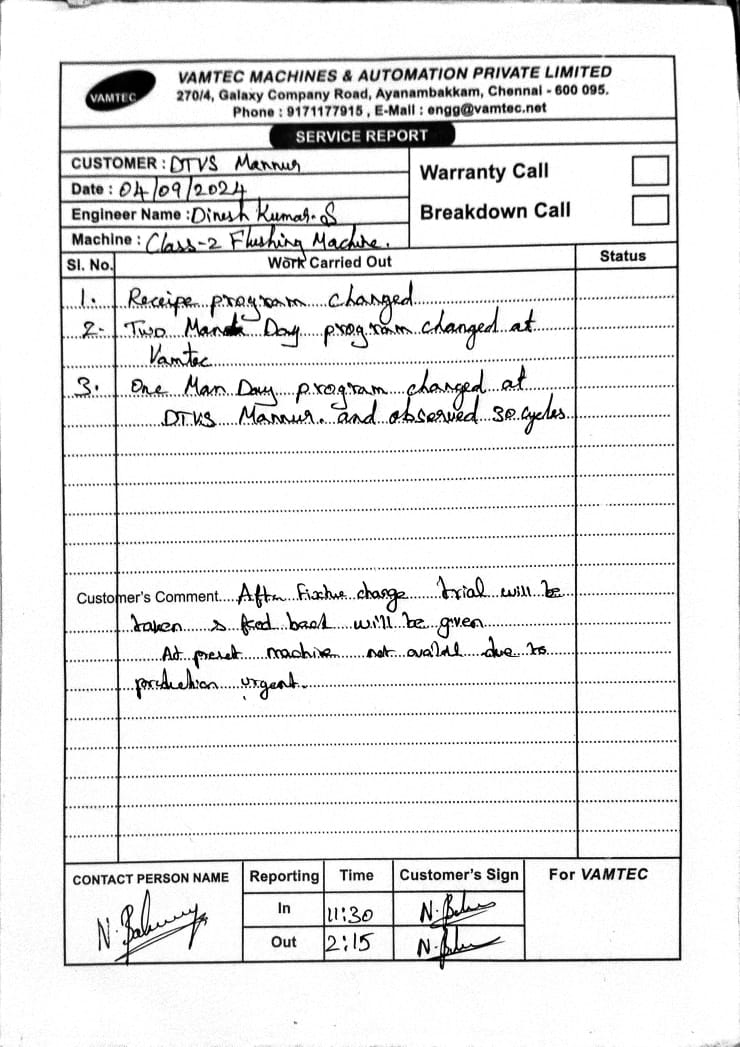 VAMTEC
VAMTEC MACHINES & AUTOMATION PRIVATE LIMITED
270/4, Galaxy Company Road, Ayanambakkam, Chennai - 600 095.
Phone : 9171177915 , E-Mail : engg@vamtec.net
SERVICE REPORT
CUSTOMER : DTVS Mannur
Date : 04/09/2024
Engineer Name : Dinesh Kumar. S
Machine : Class-2 Flushing Machine.
Warranty Call
Breakdown Call
Sl. No. Work Carried Out Status
1. Receipe program changed
2. Two Man Day program changed at
Vamtec
3. One Man Day program changed at
DTVS Mannur. and observed 30 cycles
Customer's Comment After Fixture change trial will be
taken & feed back will be given
At preset machine not availal due to
production urgent.
CONTACT PERSON NAME Reporting Time Customer's Sign For VAMTEC
In 11:30
Out 2:15